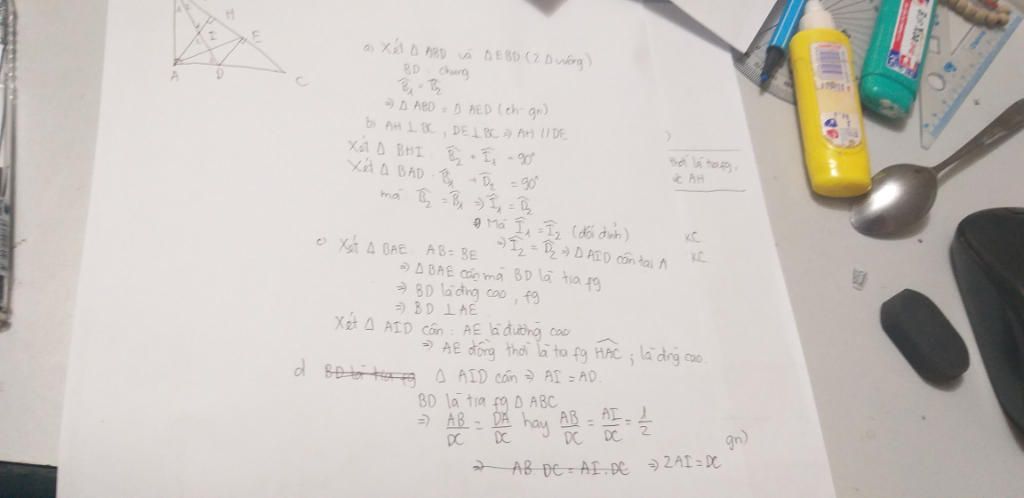 H
I
E
A
D
C
a) Xét Δ ABD và Δ EBD (2 Δ vuông)
BD chung
B̂₁ = B̂₂
⇒ Δ ABD = Δ AED (ch-gn)
b) AH ⊥ BC, DE ⊥ BC ⇒ AH // DE
Xét Δ BHI: B̂₂ + Î₁ = 90°
Xét Δ BAD: B̂₁ + D̂₂ = 90°
mà B̂₂ = B̂₁ ⇒ Î₁ = D̂₂
Mà Î₁ = Î₂ (đối đỉnh)
⇒ Î₂ = D̂₂ ⇒ Δ AID cân tại A
c) Xét Δ BAE: AB = BE
⇒ Δ BAE cân mà BD là tia fg
⇒ BD là đng cao, fg
⇒ BD ⊥ AE
Xét Δ AID cân: AE là đường cao
⇒ AE đồng thời là tia fg HAC, là đng cao.
d BD là tia fg Δ AID cân ⇒ AI = AD.
BD là tia fg Δ ABC
⇒ AB/DC = DA/DC hay AB/DC = AI/DC = 1/2
⇒ AB DC = AI.DC ⇒ 2AI = DC
thời là tia fg,
AH
KC
KC
gn)